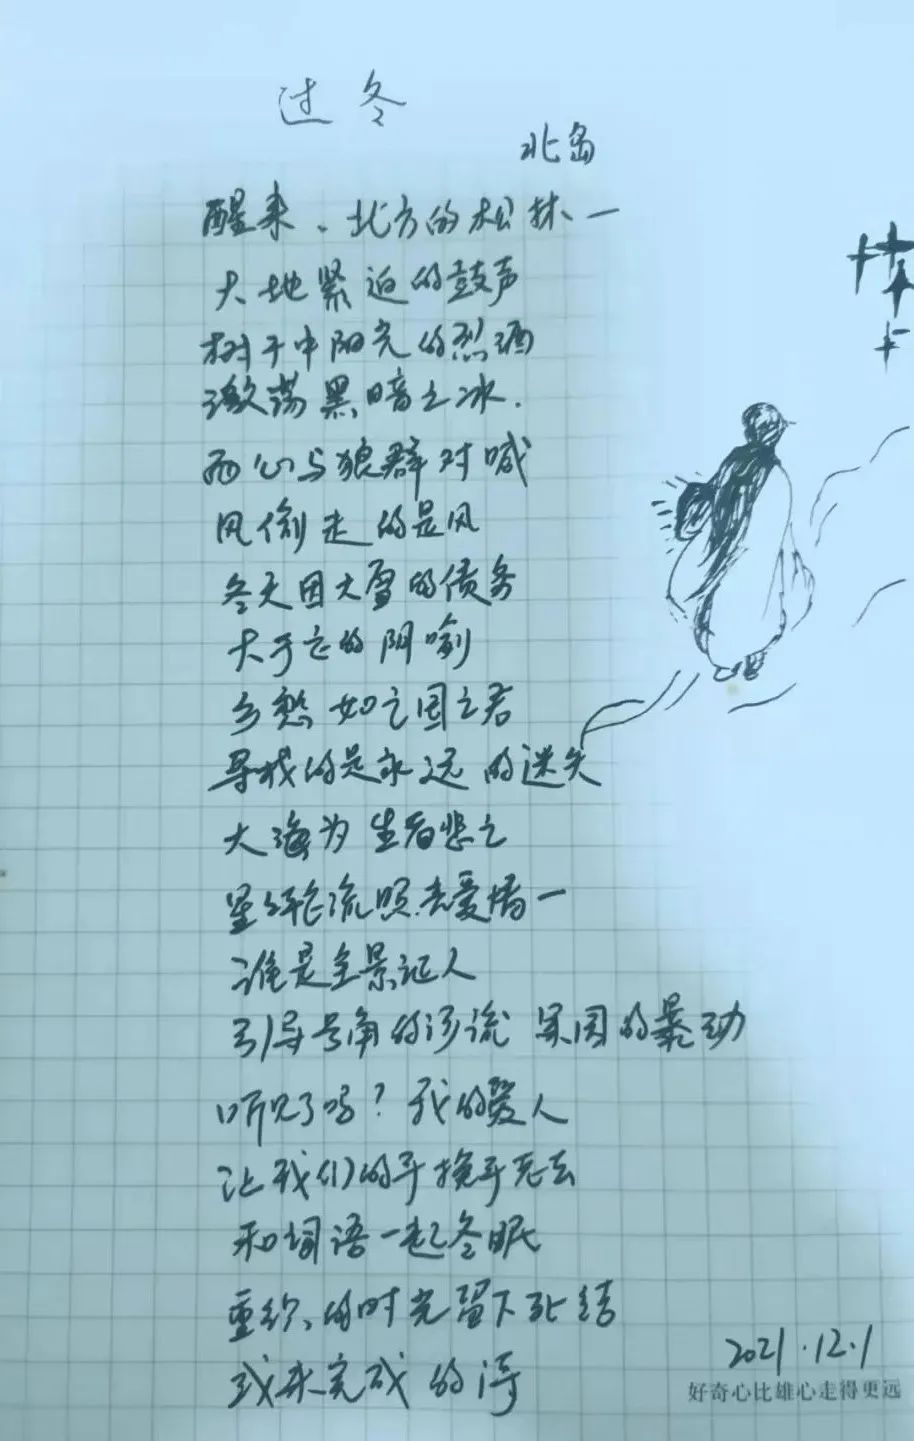 过冬
北岛
醒来、北方的松林一
大地紧迫的鼓声
树干中阳光的烈酒
激荡黑暗之冰.
而心与狼群对喊
风偷走的是风
冬天因大雪的债务
大于它的隐喻
乡愁如亡国之君
寻找的是永远的迷失
大海为生者悲亡
星星轮流照亮爱情一
谁是全景证人
引导号角的河流 果园的暴动
听见了吗?我的爱人
让我们的手挽手老去
和词语一起冬眠
重织的时光留下死结
或未完成的诗
2021.12.1
好奇心比雄心走得更远